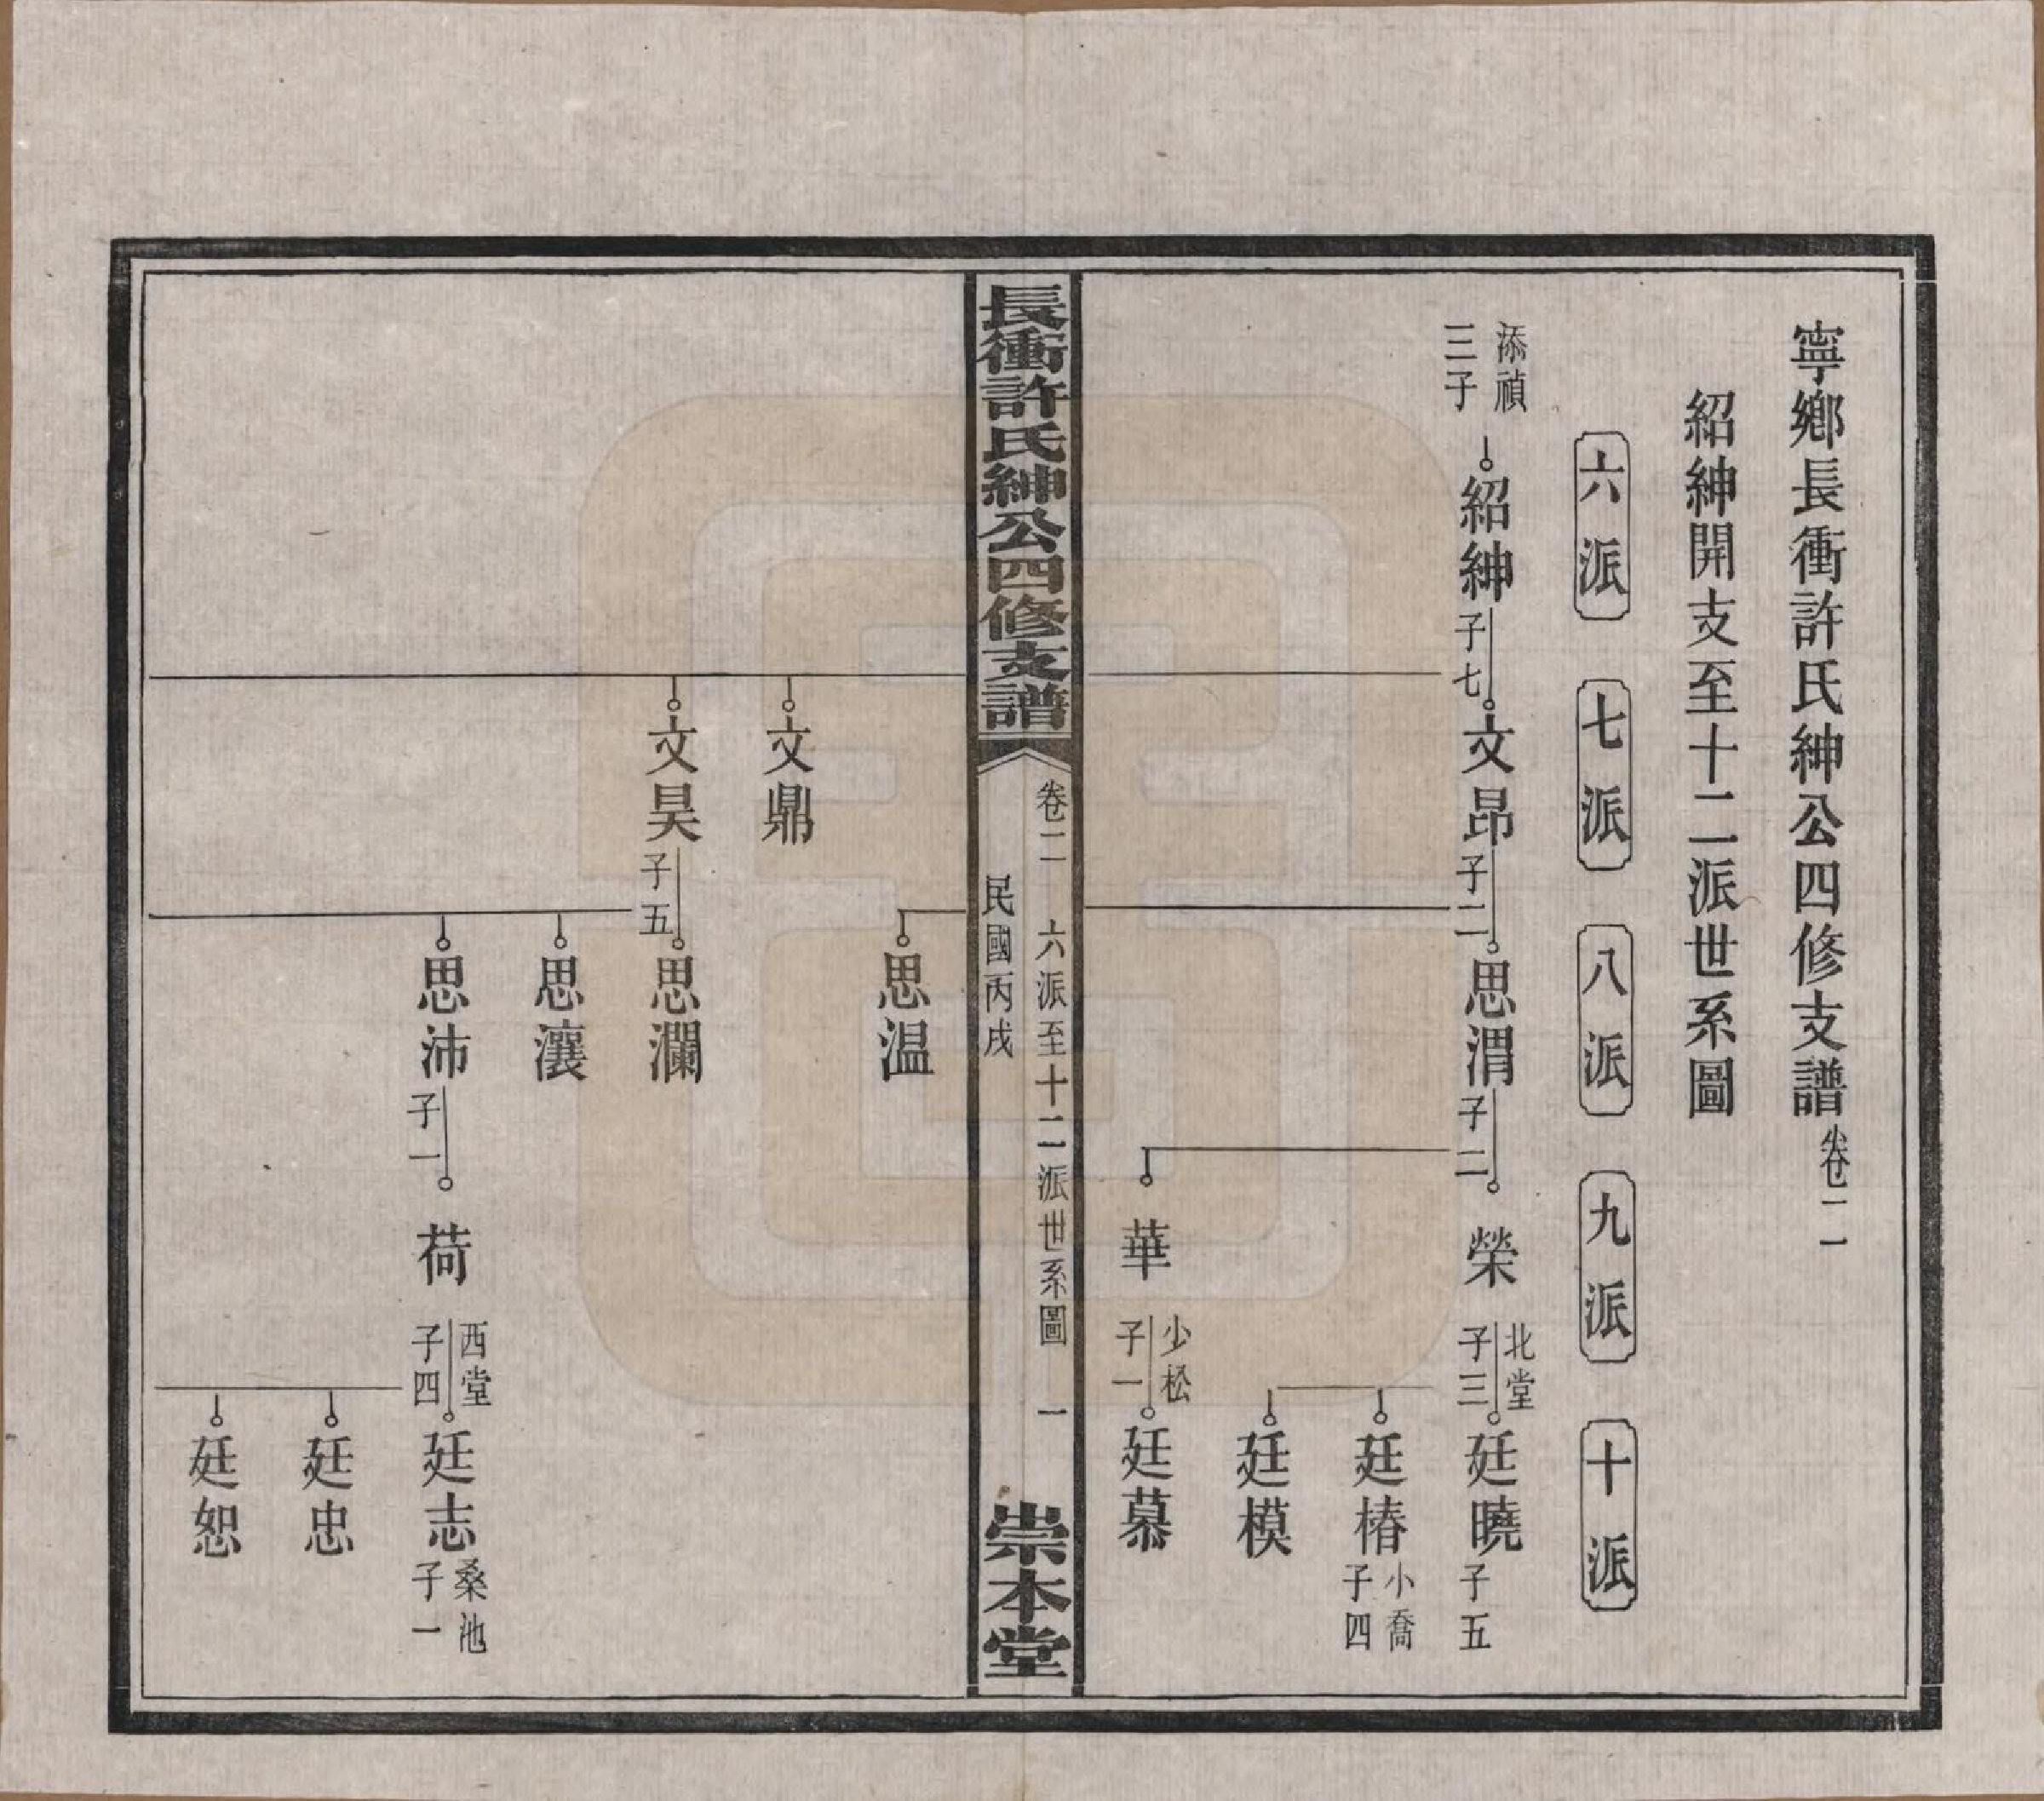 寧鄉長衝許氏紳公四修支譜卷二 一
紹紳開支至十二派世系圖
六派
七派
八派
九派
十派
添禎
三子
紹紳
子七
文昂
子二
思渭
子二
榮
北堂
子三
廷曉
子五
廷椿
小喬
子四
廷模
華
少松
子一
廷慕
長衝許氏紳公四修支譜
卷二 六派至十二派世系圖 一
民國丙戌
崇本堂
思温
文鼎
文昊
子五
思瀾
思瀼
思沛
子一
荷
西堂
子四
廷志
桑池
子一
廷忠
廷恕